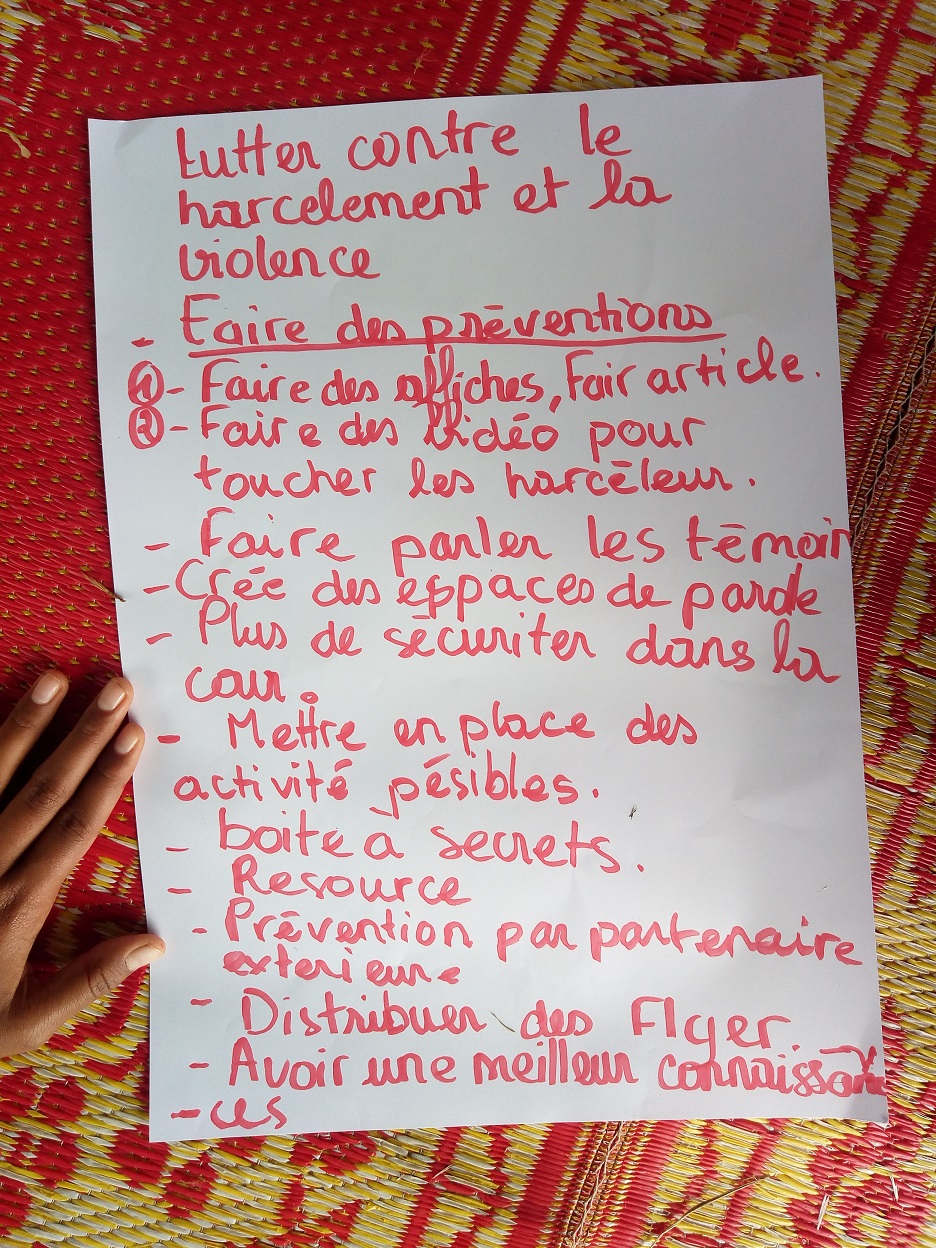 Lutter contre le
harcelement et la
violence
- Faire des préventions
①- Faire des affiches, Fair article.
②- Faire des Vidéo pour
toucher les harcéleur.
- Faire parler les témoin
- Crée des espaces de parole
- Plus de sécuriter dans la
cour.
- Mettre en place des
activité pésibles.
- boite a secrets.
- Resource
- Prévention par partenaire
exterieure
- Distribuer des Flyer.
- Avoir une meilleur connaissan
- ces